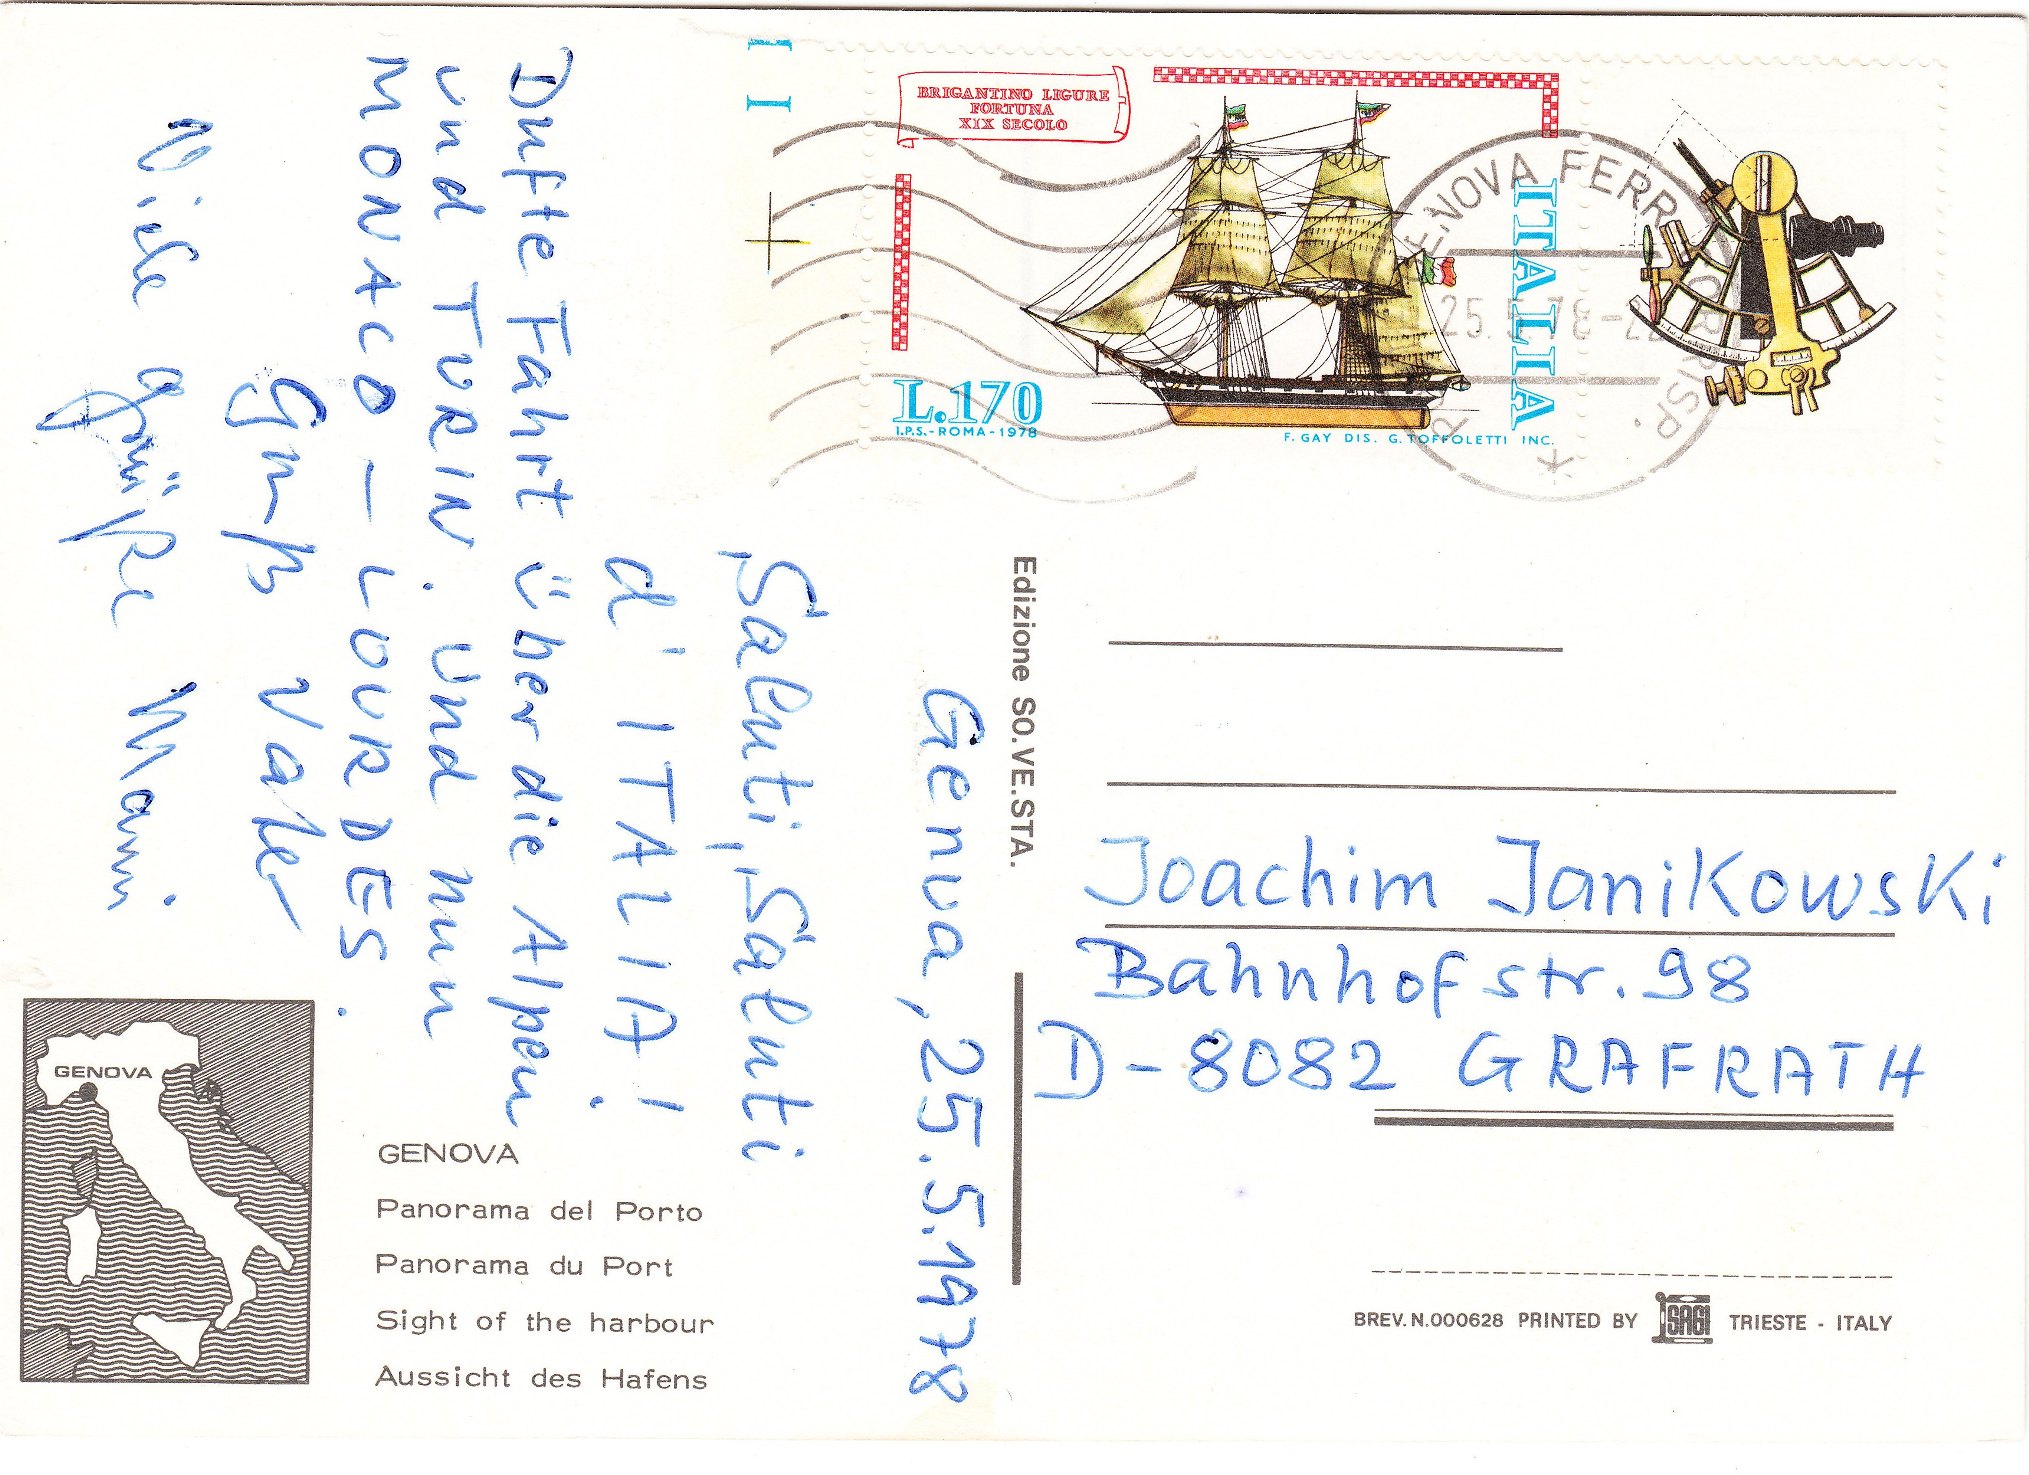 Genua, 25.5.1978
Saluti, Saluti
d' ITALIA!
Dufte Fahrt über die Alpen
und TURIN. Und nun
MONACO – LOURDES.
Gruß Vater
Viele grüße Mami
BRIGANTINO LIGURE
FORTUNA
XIX SECOLO
ITALIA
L.170
I.P.S.-ROMA-1978
F. GAY DIS. G. TOFFOLETTI INC.
GENOVA FERR CORRISP.
25.5.78
Edizione SO.VE.STA.
Joachim Janikowski
Bahnhofstr. 98
D-8082 GRAFRATH
GENOVA
GENOVA
Panorama del Porto
Panorama du Port
Sight of the harbour
Aussicht des Hafens
BREV.N.000628 PRINTED BY SAGI TRIESTE - ITALY